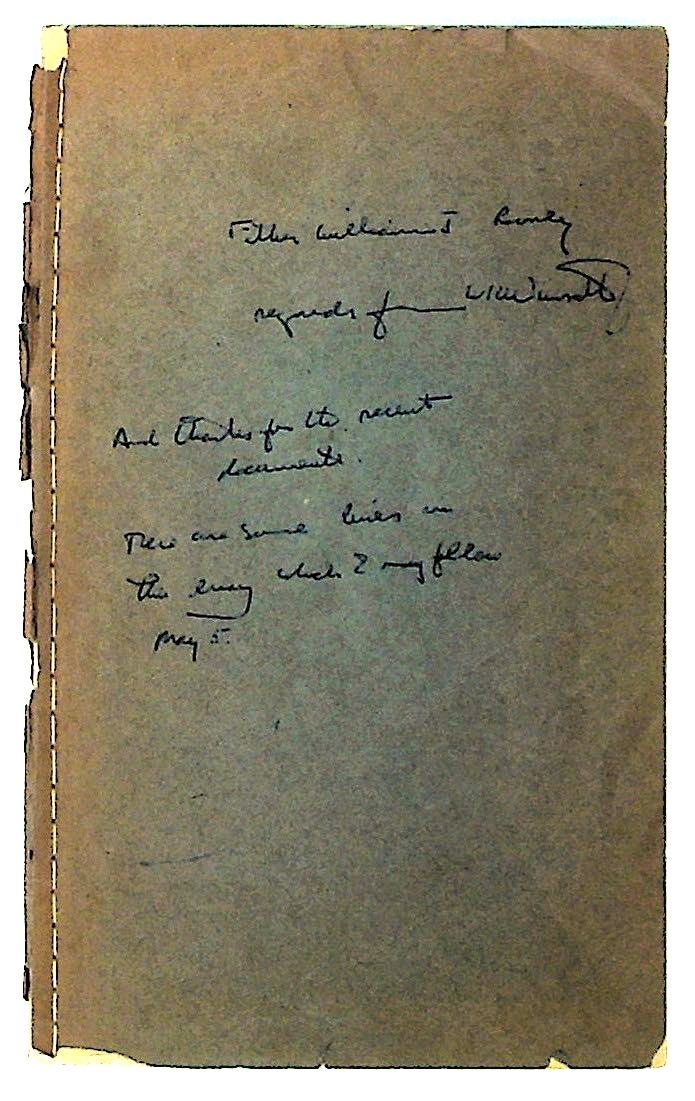 Father William J Rooney
regards from W K Wimsatt
And thanks for the recent
documents.
There are some lines in
this essay which I may follow
May 5.